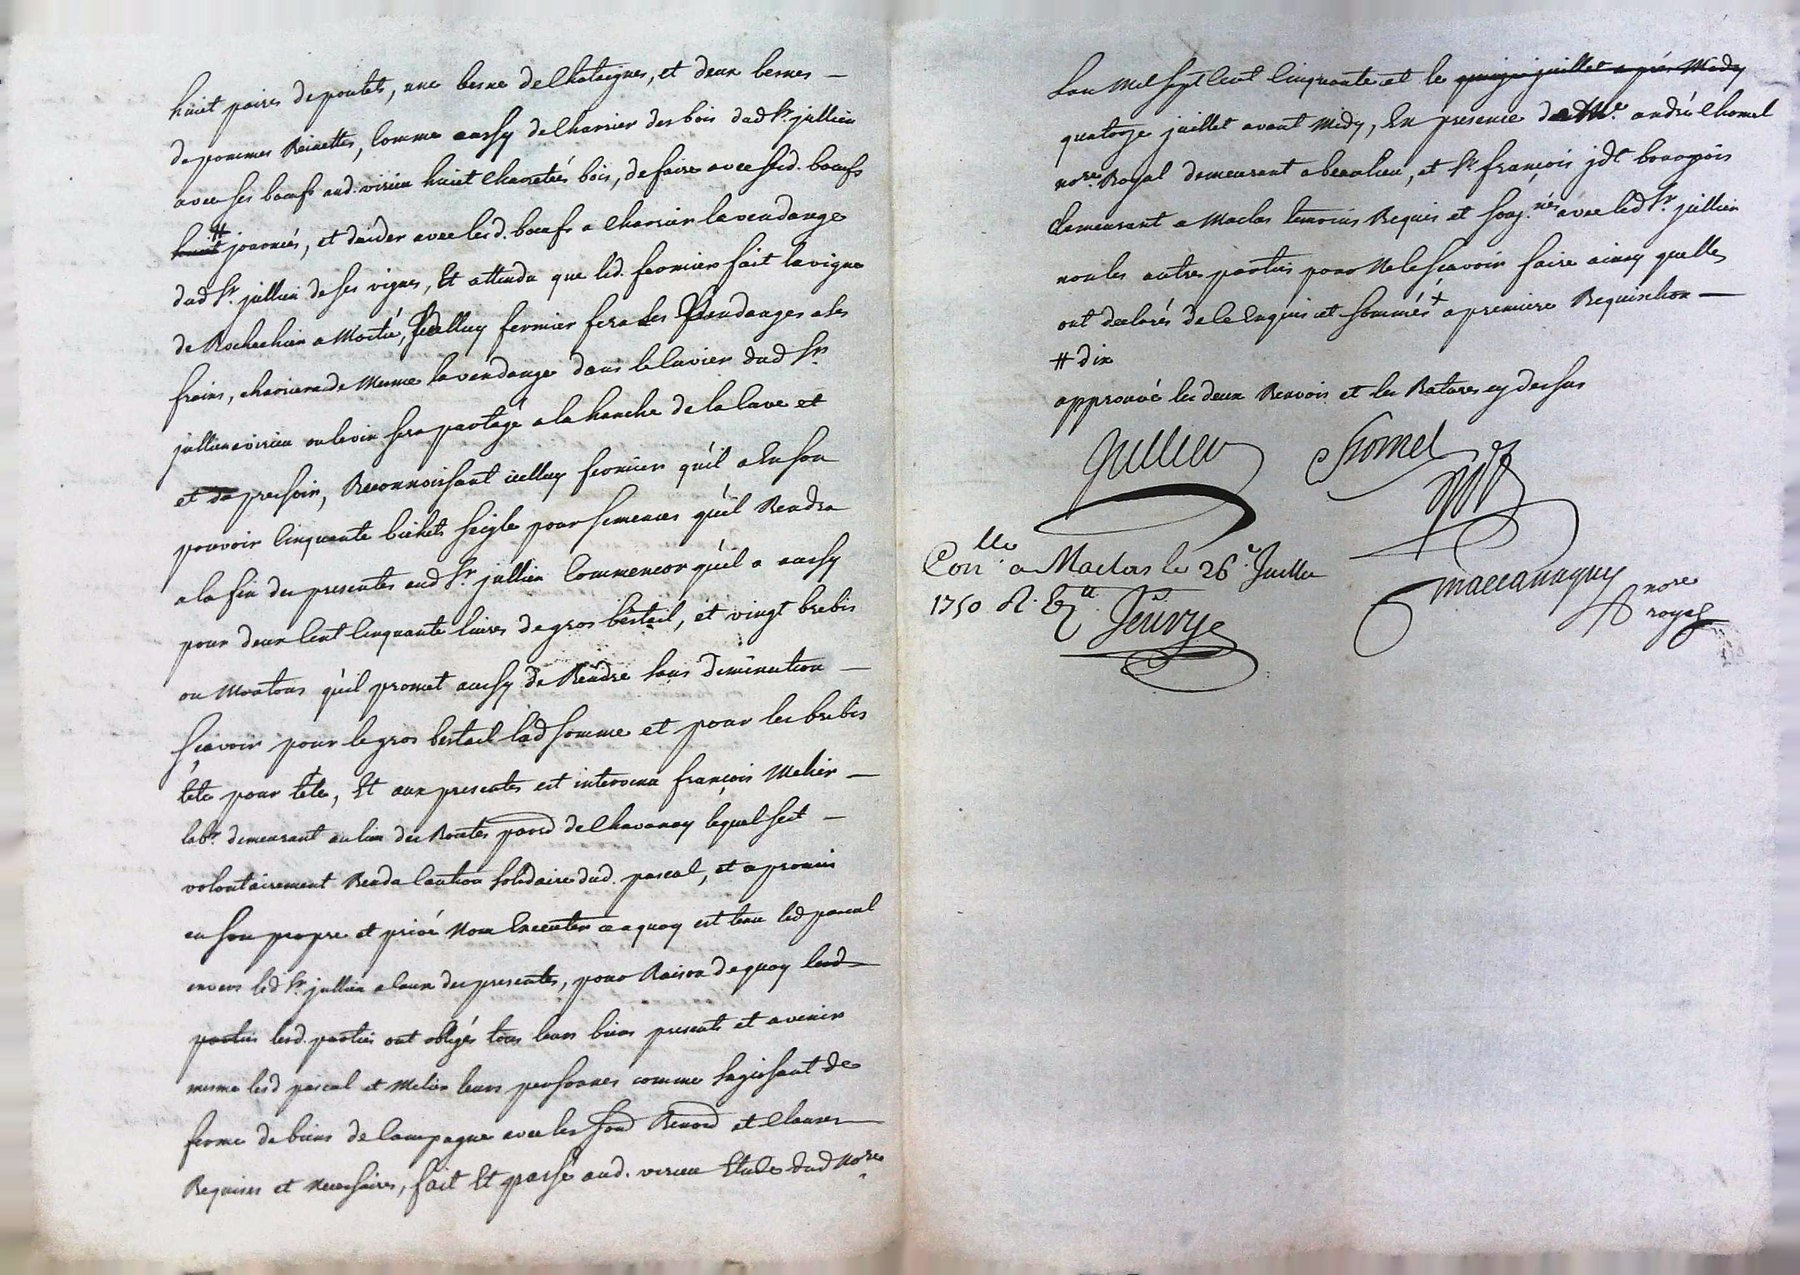 huit paires de poulets, une benne de Chataignes, et deux bennes –
de pommes Reinettes, Comme aussy de Charrier des bois dud Sr. jullien
avec ses bœufs aud. virieu huit Charretés bois, de faire avec sesd. bœufs
huit # journées, et daider avec lesd. bœufs a Charrier la vendange
dud Sr. jullien de ses vignes, Et attendu que led. fermier fait la vigne
de Rochechien a Moitié, Icelluy fermier fera les Vendanges a ses
frais, charriera de Meme la vendange dans le Cuvier dud Sr.
jullien a virieu ou le vin sera partagé a la hanche de la Cuve et
et du pressoir, Reconnoissant icelluy fermier qu'il a En son
pouvoir Cinquante bichets seigle pour semences qu'il Rendra
a la fin des presentes aud Sr. jullien Commencer qu'il a aussy
pour deux Cent Cinquante livres de gros bestail, et vingt brebis
ou Moutons qu'il promet aussy de Rendre sans diminution –
sçavoir pour le gros bestail lad somme et pour les brebis
téte pour téte, Et aux presentes est intervenu françois Melier –
labr. demeurant au lieu des Routes parr de Chavanay lequel s'est –
volontairement Rendu Caution solidaire dud. pascal, et a promis
en son propre et privé Nom Executer a quoy est tenu led pascal
envers led Sr. jullien a Cause des presentes, pour Raison de quoy lesd
parties lesd. parties ont obligés tous leurs biens presents et avenir
mesme lesd pascal et Melier leurs personnes comme sagissant de
ferme de biens de Campagne avec les soud Renond et Clauses
Requises et necessaires, fait Et passé aud. virieu Etude dud nore
Lan Mil sept Cent Cinquante et le quinze juillet aprés Midy
quatorze juillet avant Midy, En presence de Me. andré Chomel
nore. Royal demeurant a beaulieu, et Sr. françois jdt bourgeois
demeurant a Maclas temoins Requis et soussignés avec led Sr. jullien
non les autres parties pour Ne le sçavoir faire ainsy quelles
ont declarés de ce Enquis et sommés + a premiere Requisition –
# dix
approuvé les deux Renvois et les Ratures cy dessus
Jullien Chomel
Conlle. a Maclas le 26e. Juillet
1750 R.
Jeurye
Maccanaguy nore
royal